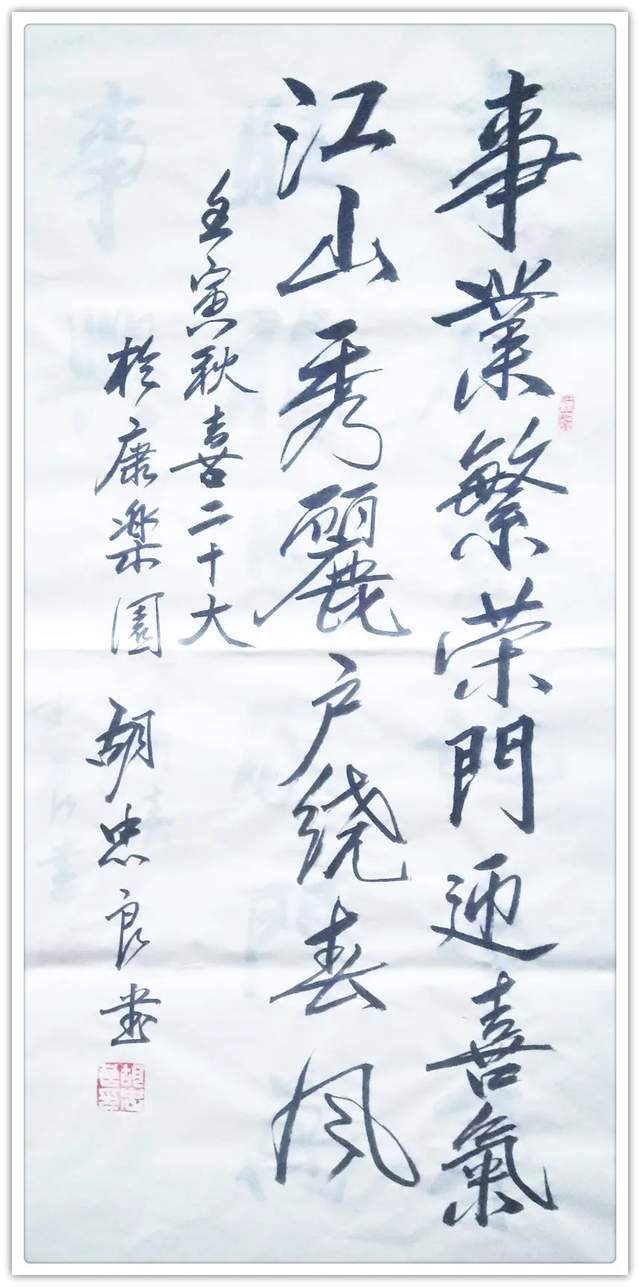 事業繁荣門迎喜氣
江山秀麗户绕春风
壬寅秋喜二十大
於康樂園 胡忠良书